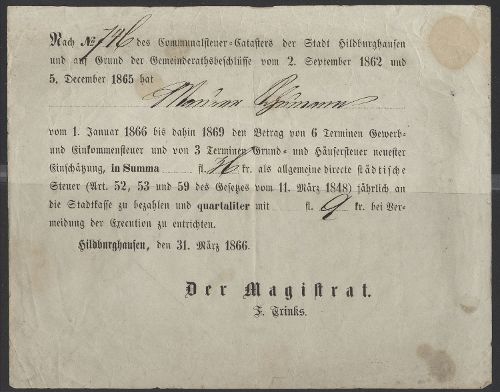 Nach № 746 des Communalsteuer-Catasters der Stadt Hildburghausen
und auf Grund der Gemeinderathsbeschlüsse vom 2. September 1862 und
5. December 1865 hat
Maurer
vom 1. Januar 1866 bis dahin 1869 den Betrag von 6 Terminen Gewerb-
und Einkommensteuer und von 3 Terminen Grund- und Häusersteuer neuester
Einschätzung, in Summa fl. 36 kr. als allgemeine directe städtische
Steuer (Art. 52, 53 und 59 des Gesetzes vom 11. März 1848) jährlich an
die Stadtkasse zu bezahlen und quartaliter mit fl. 9 kr. bei Ver-
meidung der Execution zu entrichten.
Hildburghausen, den 31. März 1866.
Der Magistrat.
F. Trinks.